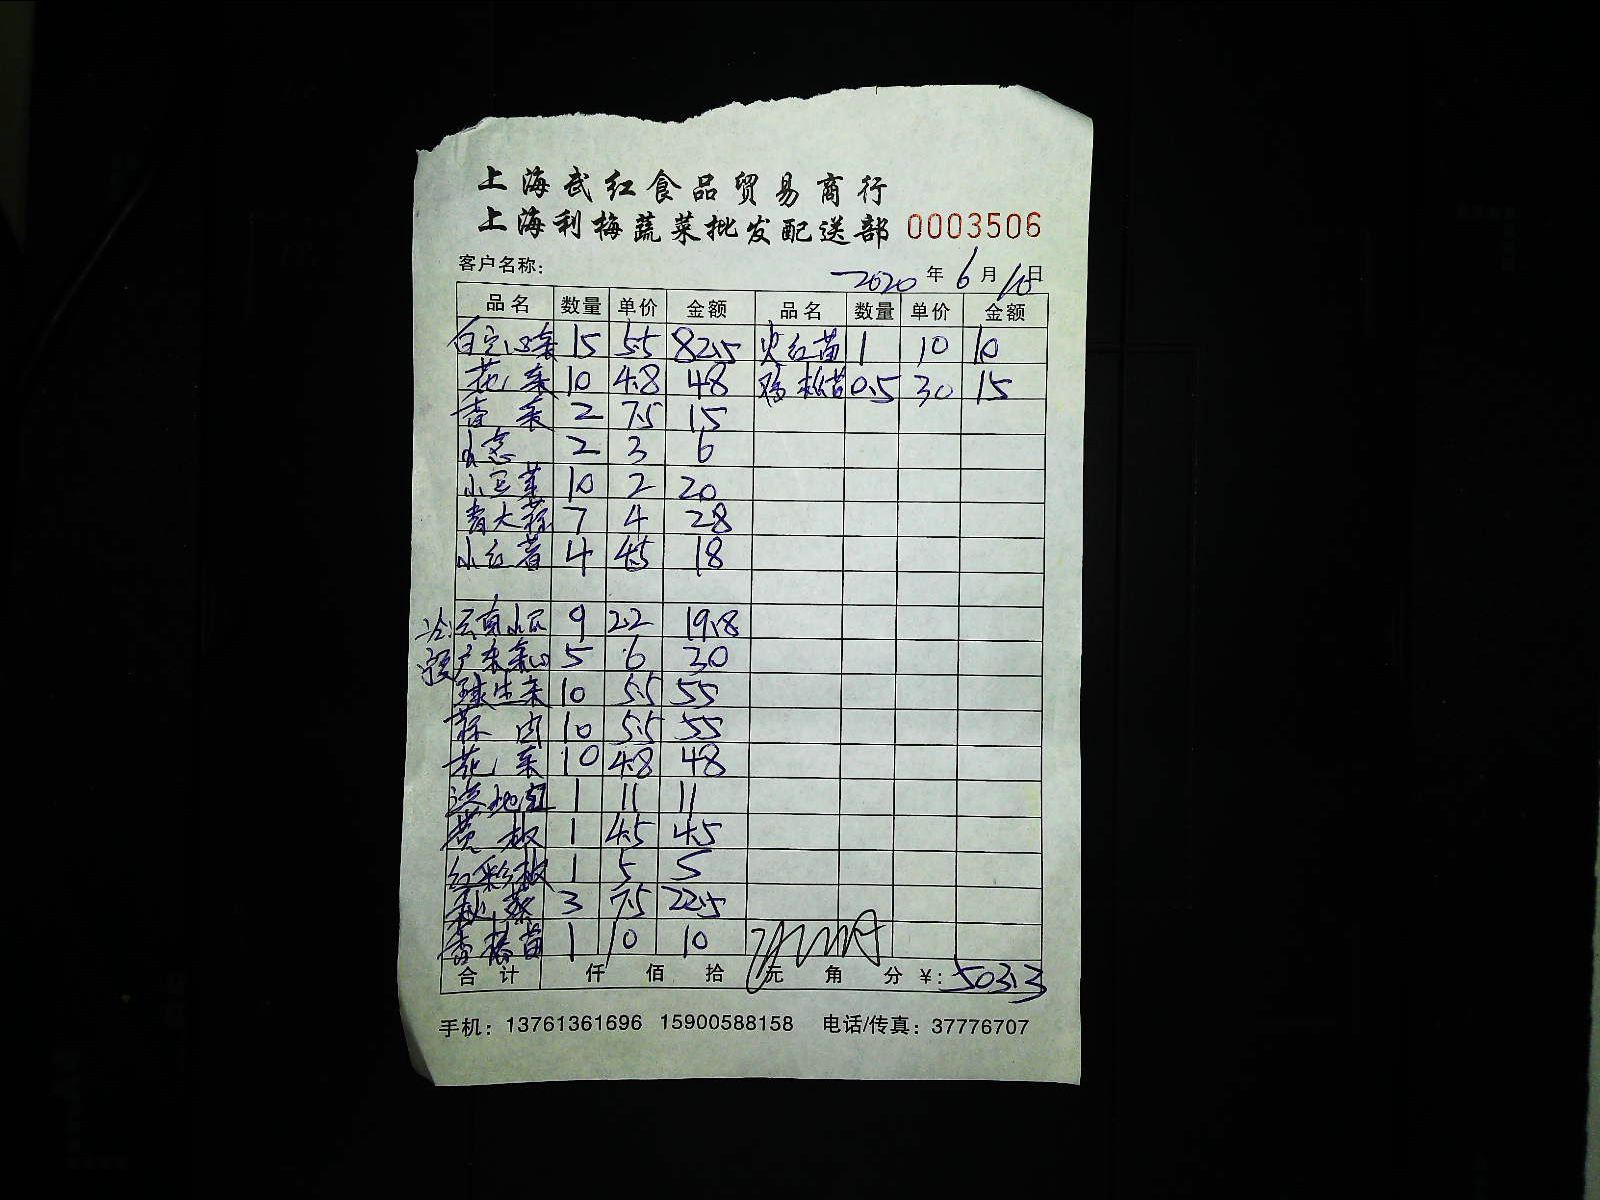 上海武红食品贸易商行
上海利梅蔬菜批发配送部 0003506
客户名称: 2020年6月10日
品名 数量 单价 金额 品名 数量 单价 金额
白空心菜 15 5.5 82.5 火红苗 1 10 10
花菜 10 4.8 48 0.5 30 15
香菜 2 7.5 15
小葱 2 3 6
10 2 20
青大蒜 7 4 28
小红著 4 4.5 18
云南小瓜 9 2.2 19.8
广东菜心 5 6 30
球生菜 10 5.5 55
蒜肉 10 5.5 55
花菜 10 4.8 48
1 11 11
黄椒 1 4.5 4.5
红彩椒 1 5 5
秋葵 3 7.5 22.5
香椿苗 1 10 10
合计 仟 佰 拾 元 角 分 ¥: 503.3
手机: 13761361696 15900588158 电话/传真: 37776707